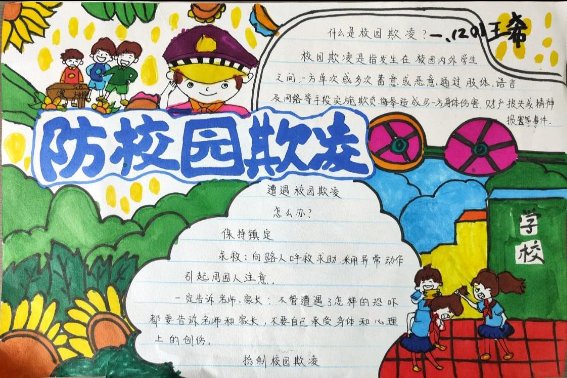 什么是校园欺凌?
一.(20)王希
校园欺凌是指发生在校园内外学生
之间,一方单次或多次蓄意或恶意通过肢体、语言
及网络等手段实施欺负、侮辱造成另一方身体伤害、财产损失或精神
损害等事件.
防校园欺凌
遭遇校园欺凌
怎么办?
保持镇定
求救:向路人呼救求助,采用异常动作
引起周围人注意.
一定告诉老师,家长:不管遭遇了怎样的恐吓
都要告诉老师和家长,不要自己承受身体和心理
上的创伤.
抵制校园欺凌
学校